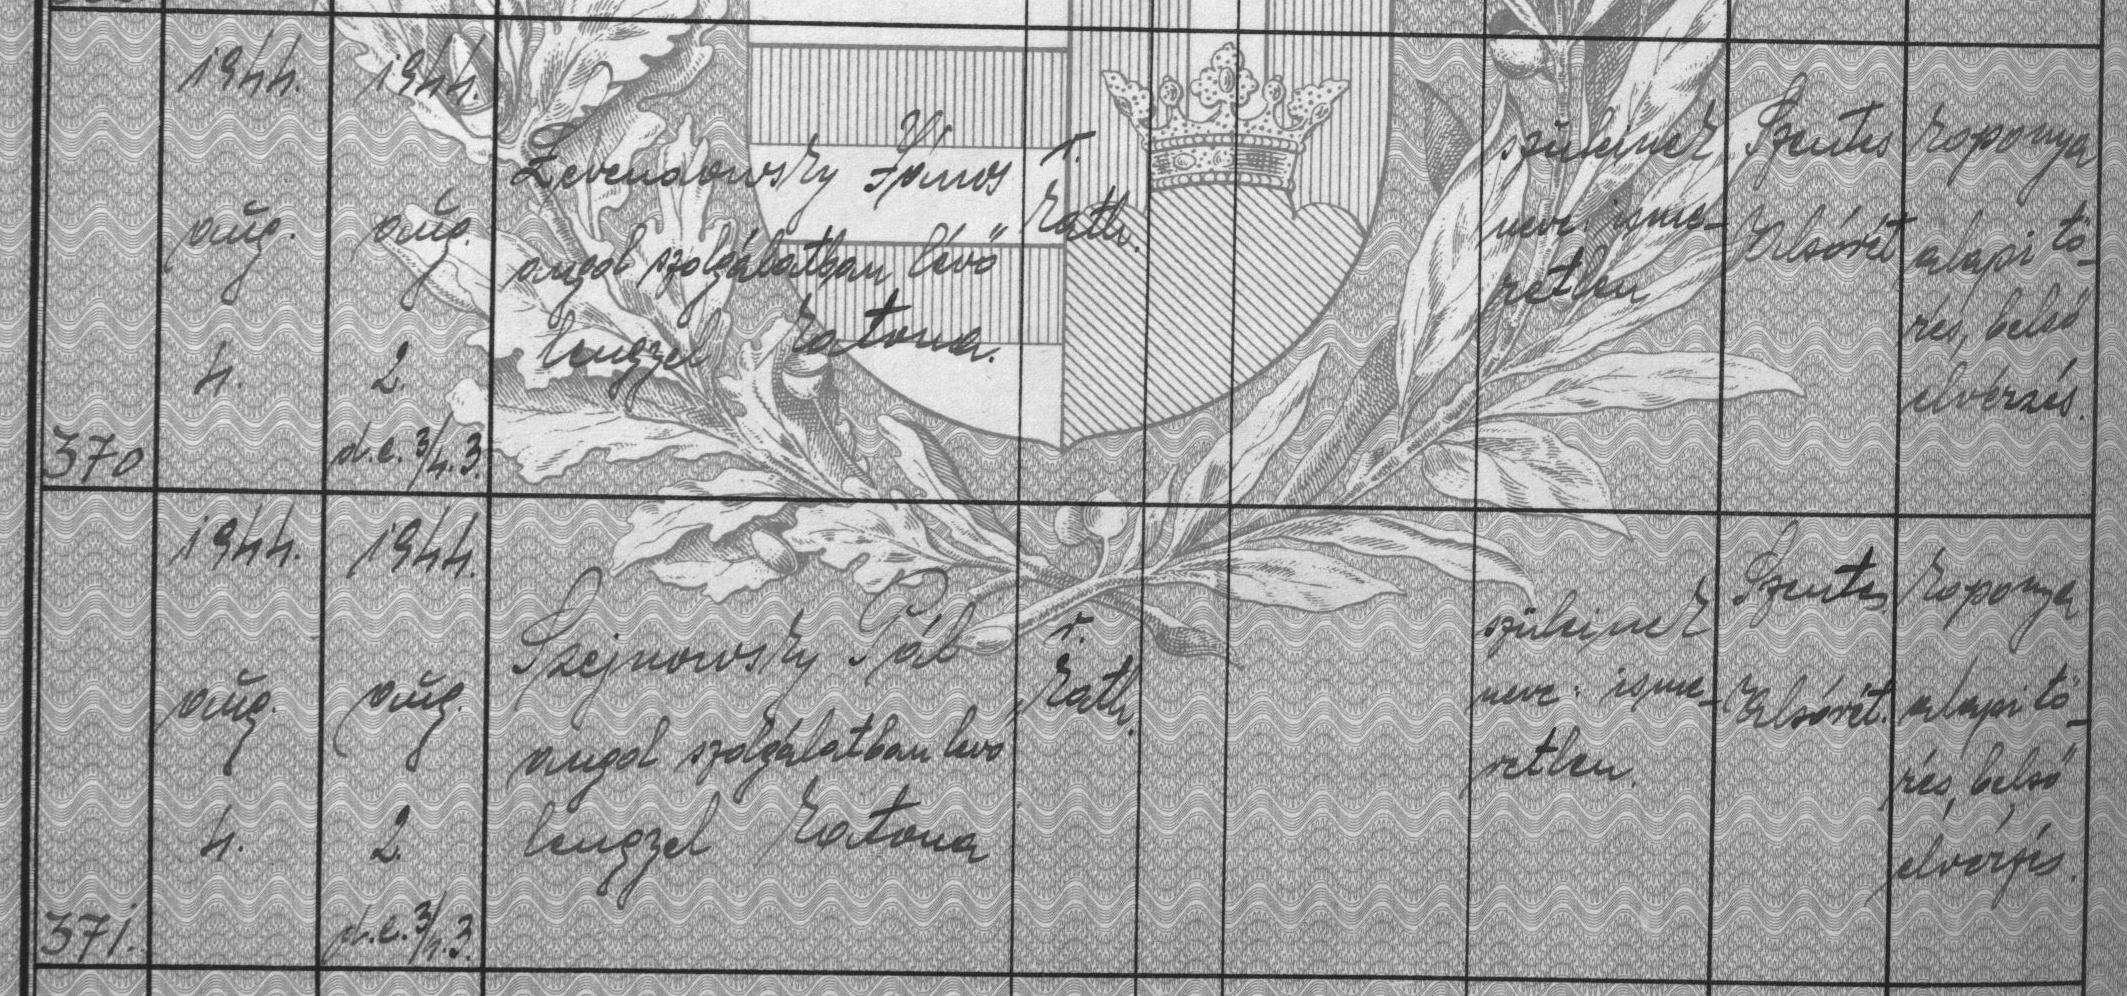 1944.
aug.
4.
1944.
aug.
2.
d.e. 3/4.3.
Levendowsky János
angol szolgálatban lévő
lengyel katona.
r.
kath.
szüleinek
neve: isme-
retlen
Szentes
Alsórét
koponya
alapi tö-
rés, belső
elvérzés.
370
1944.
aug.
4.
1944.
aug.
2.
d.e. 3/4.3.
Szejnowsky Pál
angol szolgálatban levő
lengyel katona
r.
kath.
szüleinek
neve: isme-
retlen.
Szentes
Alsórét.
koponya
alapi tö-
rés, belső
elvérzés.
371.